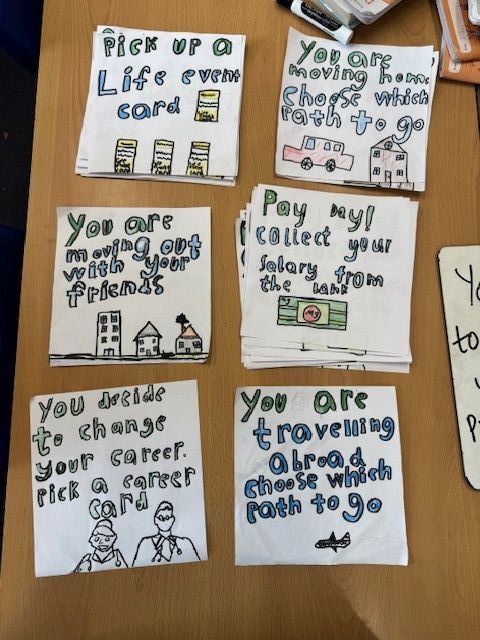 Pick up a
Life event
card
You are
moving home
Choose which
path to go
You are
moving out
with your
friends
Pay Day!
collect your
salary from
the bank
You decide
to change
your career.
Pick a career
card
You are
travelling
abroad
choose which
path to go
Yo
to